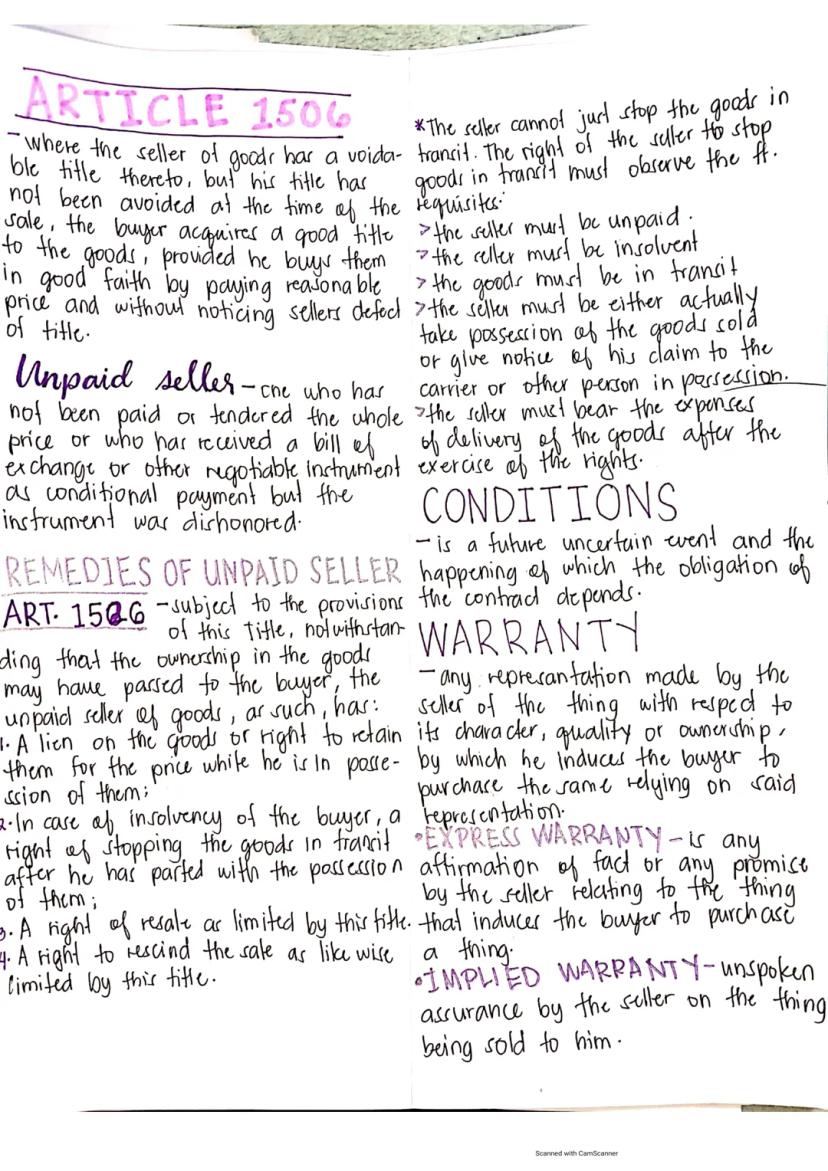 ARTICLE 1506
- where the seller of goods has a voida-
ble title thereto, but his title has
not been avoided at the time of the
sale, the buyer acquires a good title
to the goods, provided he buys them
in good faith by paying reasonable
price and without noticing sellers defect
of title.
Unpaid seller - one who has
not been paid or tendered the whole
price or who has received a bill of
exchange or other negotiable instrument
as conditional payment but the
instrument was dishonored.
REMEDIES OF UNPAID SELLER
ART. 1526 - subject to the provisions
of this Title, notwithstan-
ding that the ownership in the goods
may have passed to the buyer, the
unpaid seller of goods, as such, has:
1. A lien on the goods or right to retain
them for the price while he is in posse-
ssion of them;
2. In case of insolvency of the buyer, a
right of stopping the goods in transit
after he has parted with the possession
of them;
3. A right of resale as limited by this title.
4. A right to rescind the sale as like wise
limited by this title.
*The seller cannot just stop the goods in
transit. The right of the seller to stop
goods in transit must observe the ff.
requisites:
> the seller must be unpaid.
> the seller must be insolvent
> the goods must be in transit
> the seller must be either actually
take possession of the goods sold
or give notice of his claim to the
carrier or other person in possession.
> the seller must bear the expenses
of delivery of the goods after the
exercise of the rights.
CONDITIONS
- is a future uncertain event and the
happening of which the obligation of
the contract depends.
WARRANTY
- any represantation made by the
seller of the thing with respect to
its character, quality or ownership,
by which he induces the buyer to
purchase the same relying on said
representation.
•EXPRESS WARRANTY - is any
affirmation of fact or any promise
by the seller relating to the thing
that induces the buyer to purchase
a thing.
•IMPLIED WARRANTY - unspoken
assurance by the seller on the thing
being sold to him.
Scanned with CamScanner